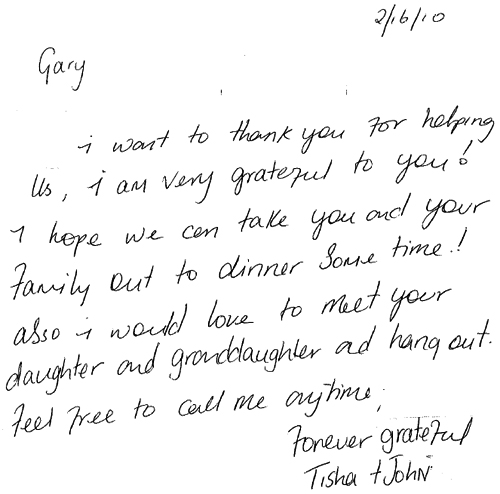 2/16/10
Gary
i want to thank you for helping
Us, i am very grateful to you!
I hope we can take you and your
Family out to dinner some time!
also i would love to meet your
daughter and granddaughter ad hang out.
Feel free to call me anytime,
Forever grateful
Tisha + John